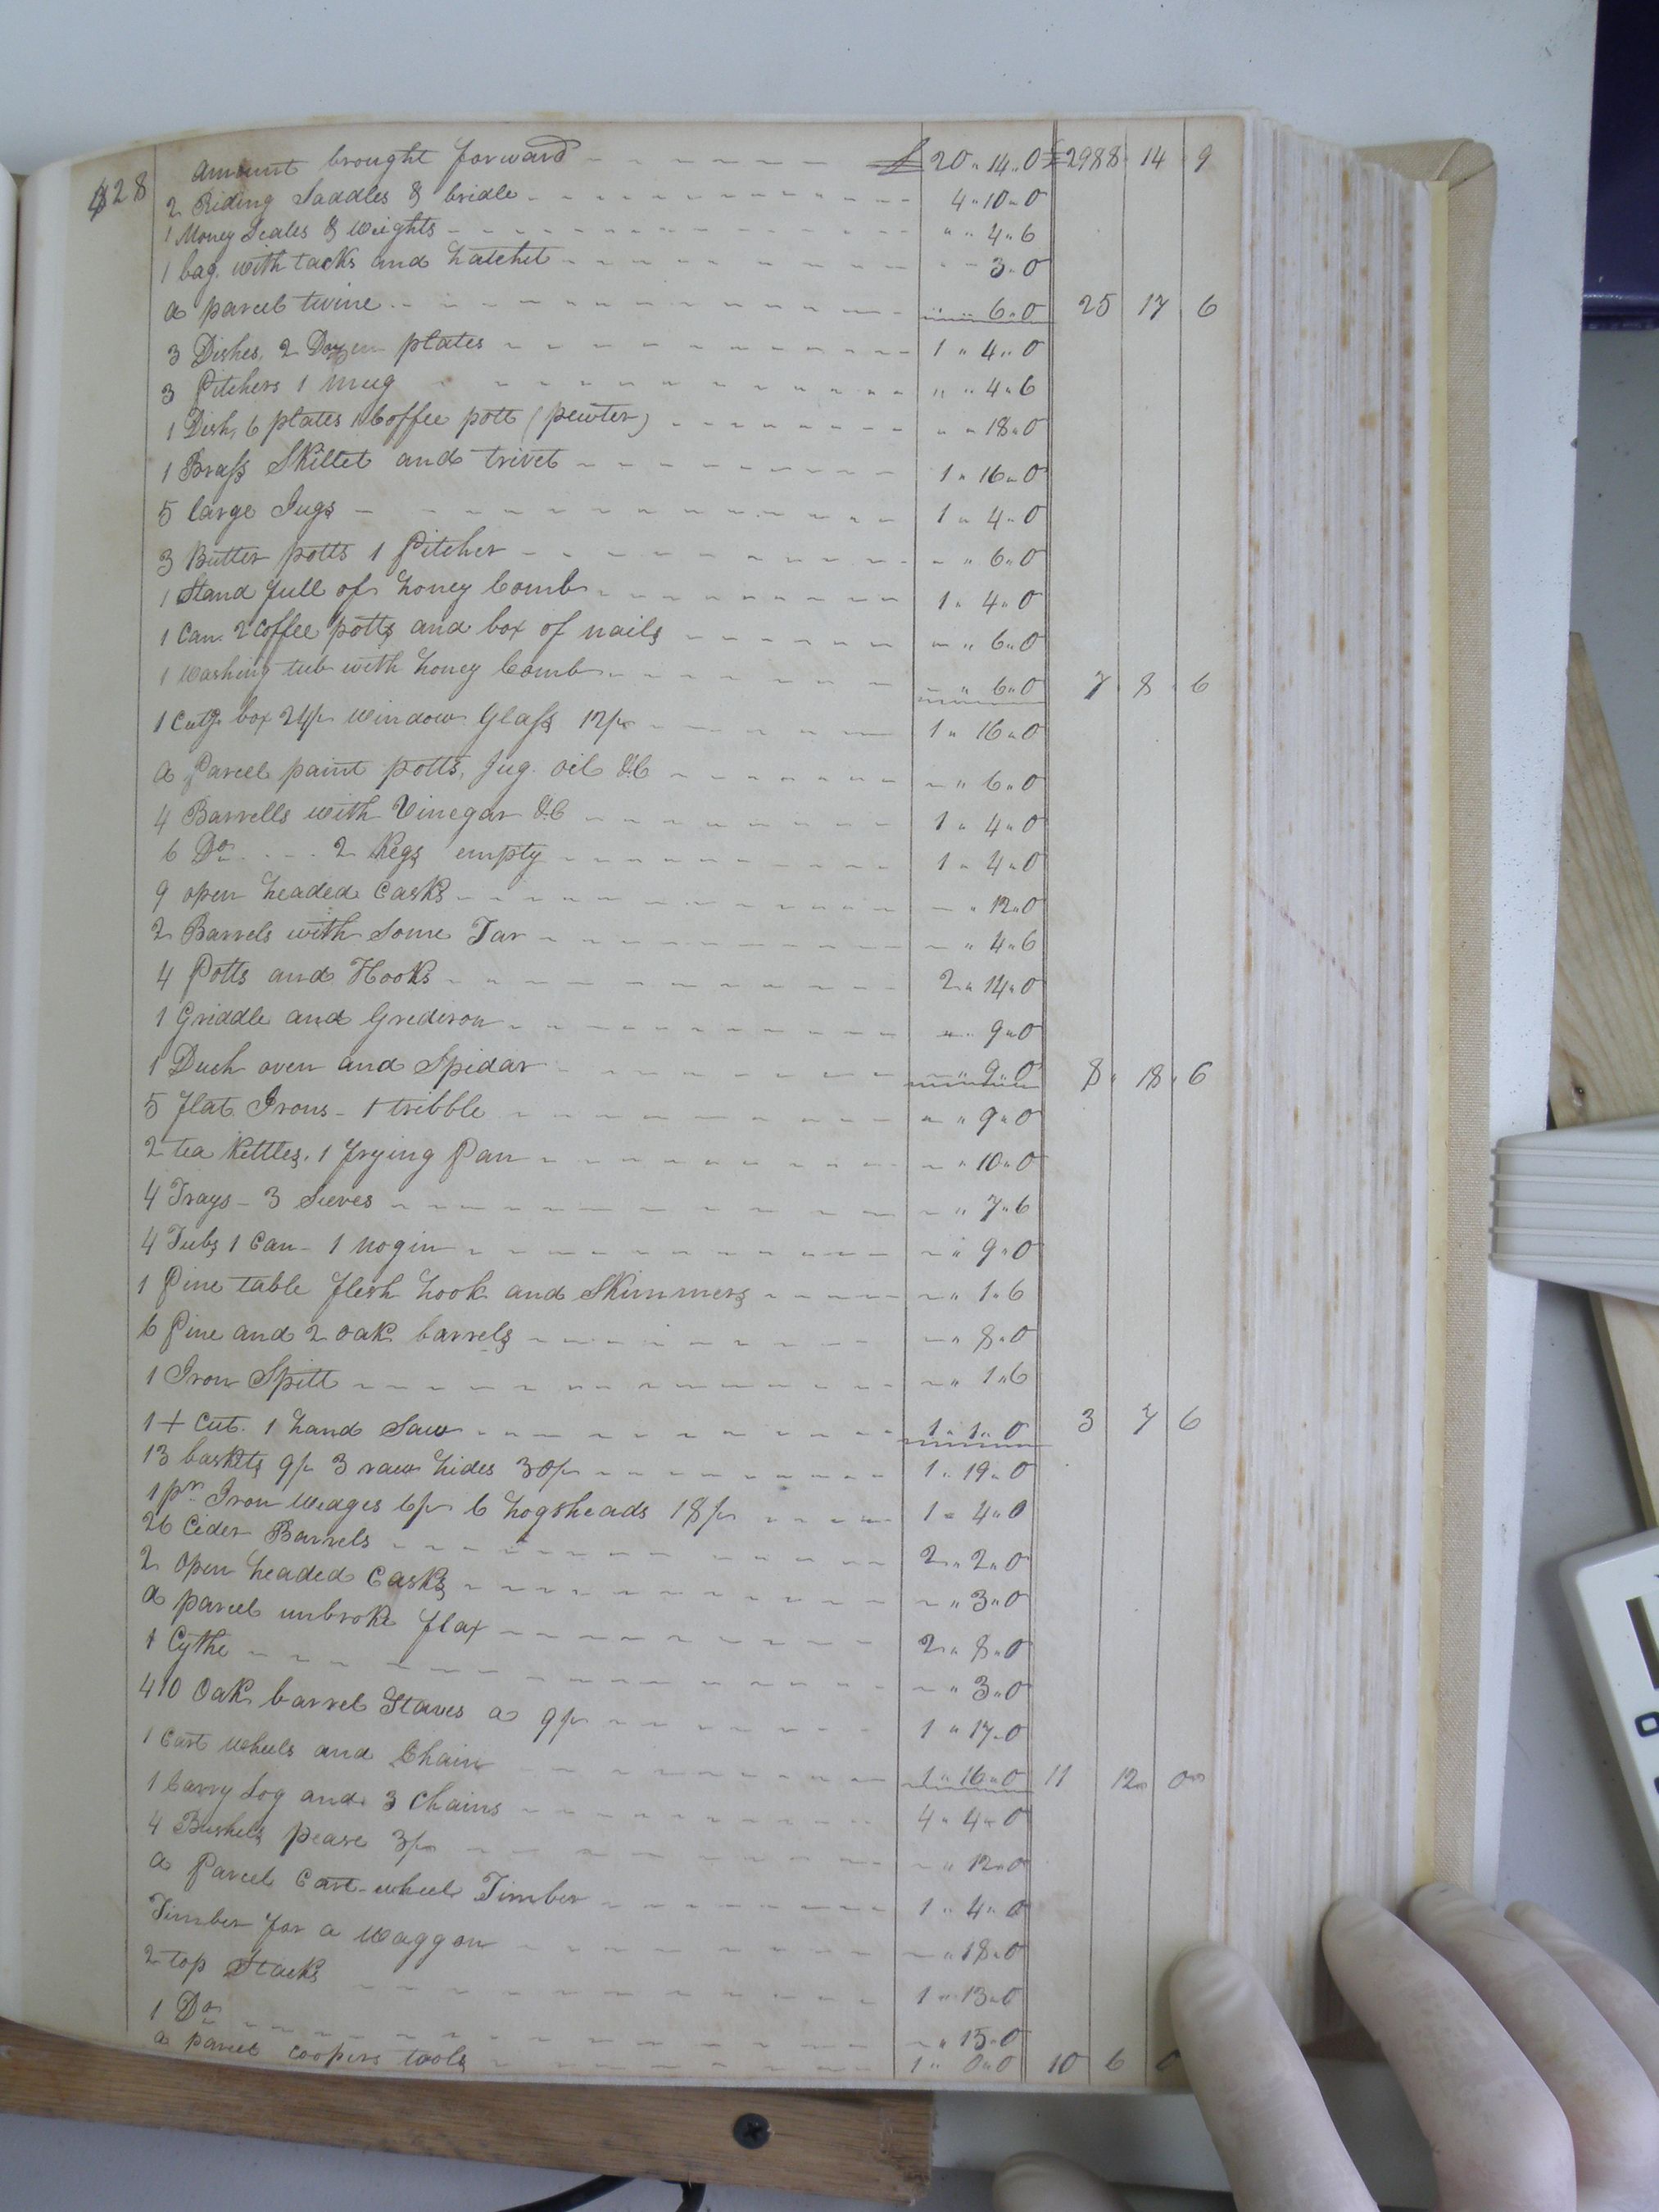 428
Amount brought forward £ 20 " 14 " 0 £2988 14 9
2 Riding Saddles & bridle 4 " 10 " 0
1 Money Scales & Weights " " 4 " 6
1 bag with tacks and hatchet " 3 " 0
a parcel twine " " 6 " 0 25 17 6
3 Dishes, 2 Dozen plates 1 " 4 " 0
3 Pitchers 1 Mug " " 4 " 6
1 Dish, 6 plates 1 Coffee pott (pewter) " " 18 " 0
1 Brass Skillet and trivet 1 " 16 " 0
5 large Jugs 1 " 4 " 0
3 Butter potts 1 Pitcher " " 6 " 0
1 Stand full of honey Comb 1 " 4 " 0
1 Can. 2 Coffee potts and box of nails " " 6 " 0
1 Washing tub with honey Comb " " 6 " 0 7 8 6
1 Cutg. box 24/ Window Glass 12/ 1 " 16 " 0
a Parcel paint potts, Jug. oil &C " " 6 " 0
4 Barrells with Vinegar &C 1 " 4 " 0
6 Do 2 Kegs empty 1 " 4 " 0
9 open headed Casks " 12 " 0
2 Barrels with Some Tar " " 4 " 6
4 Potts and Hooks 2 " 14 " 0
1 Griddle and Grediron " " 9 " 0
1 Duch oven and Spidar " " 9 " 0 8 " 18 " 6
5 flat Irons - 1 tribble " " 9 " 0
2 tea Kettles, 1 frying Pan " " 10 " 0
4 Trays - 3 Sieves " " 7 " 6
4 Tubs 1 Can - 1 nogin " " 9 " 0
1 Pine table flesh hook and Skimmers " " 1 " 6
6 Pine and 2 oak barrels " " 8 " 0
1 Iron Spitt " " 1 " 6
1 + Cut. 1 hand Saw 1 " 1 " 0 3 7 6
13 baskets 9/ 3 raw hides 30/ 1 " 19 " 0
1 pr. Iron Wedges 6/ 6 hogsheads 18/ 1 " 4 " 0
26 Cider Barrels 2 " 2 " 0
2 Open headed Casks " " 3 " 0
a parcel unbroke flax 2 " 8 " 0
1 Cythe " " 3 " 0
410 Oak barrel Staves a 9/ 1 " 17 " 0
1 Cart Wheels and Chain 1 " 16 " 0 11 12 0
1 Carry Log and 3 Chains 4 " 4 " 0
4 Bushels pease 3/ " " 12 " 0
a Parcel Cart-wheel Timber 1 " 4 " 0
Timber for a Waggon " " 18 " 0
2 top Stacks 1 " 13 " 0
1 Do " " 15 " 0
a parcel coopers tools 1 " 0 " 0 10 6 0